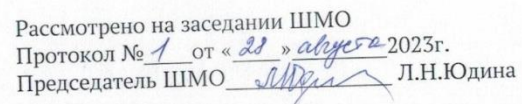 Рассмотрено на заседании ШМО
Протокол № 1 от « 28 » августа 2023г.
Председатель ШМО Л.Н.Юдина